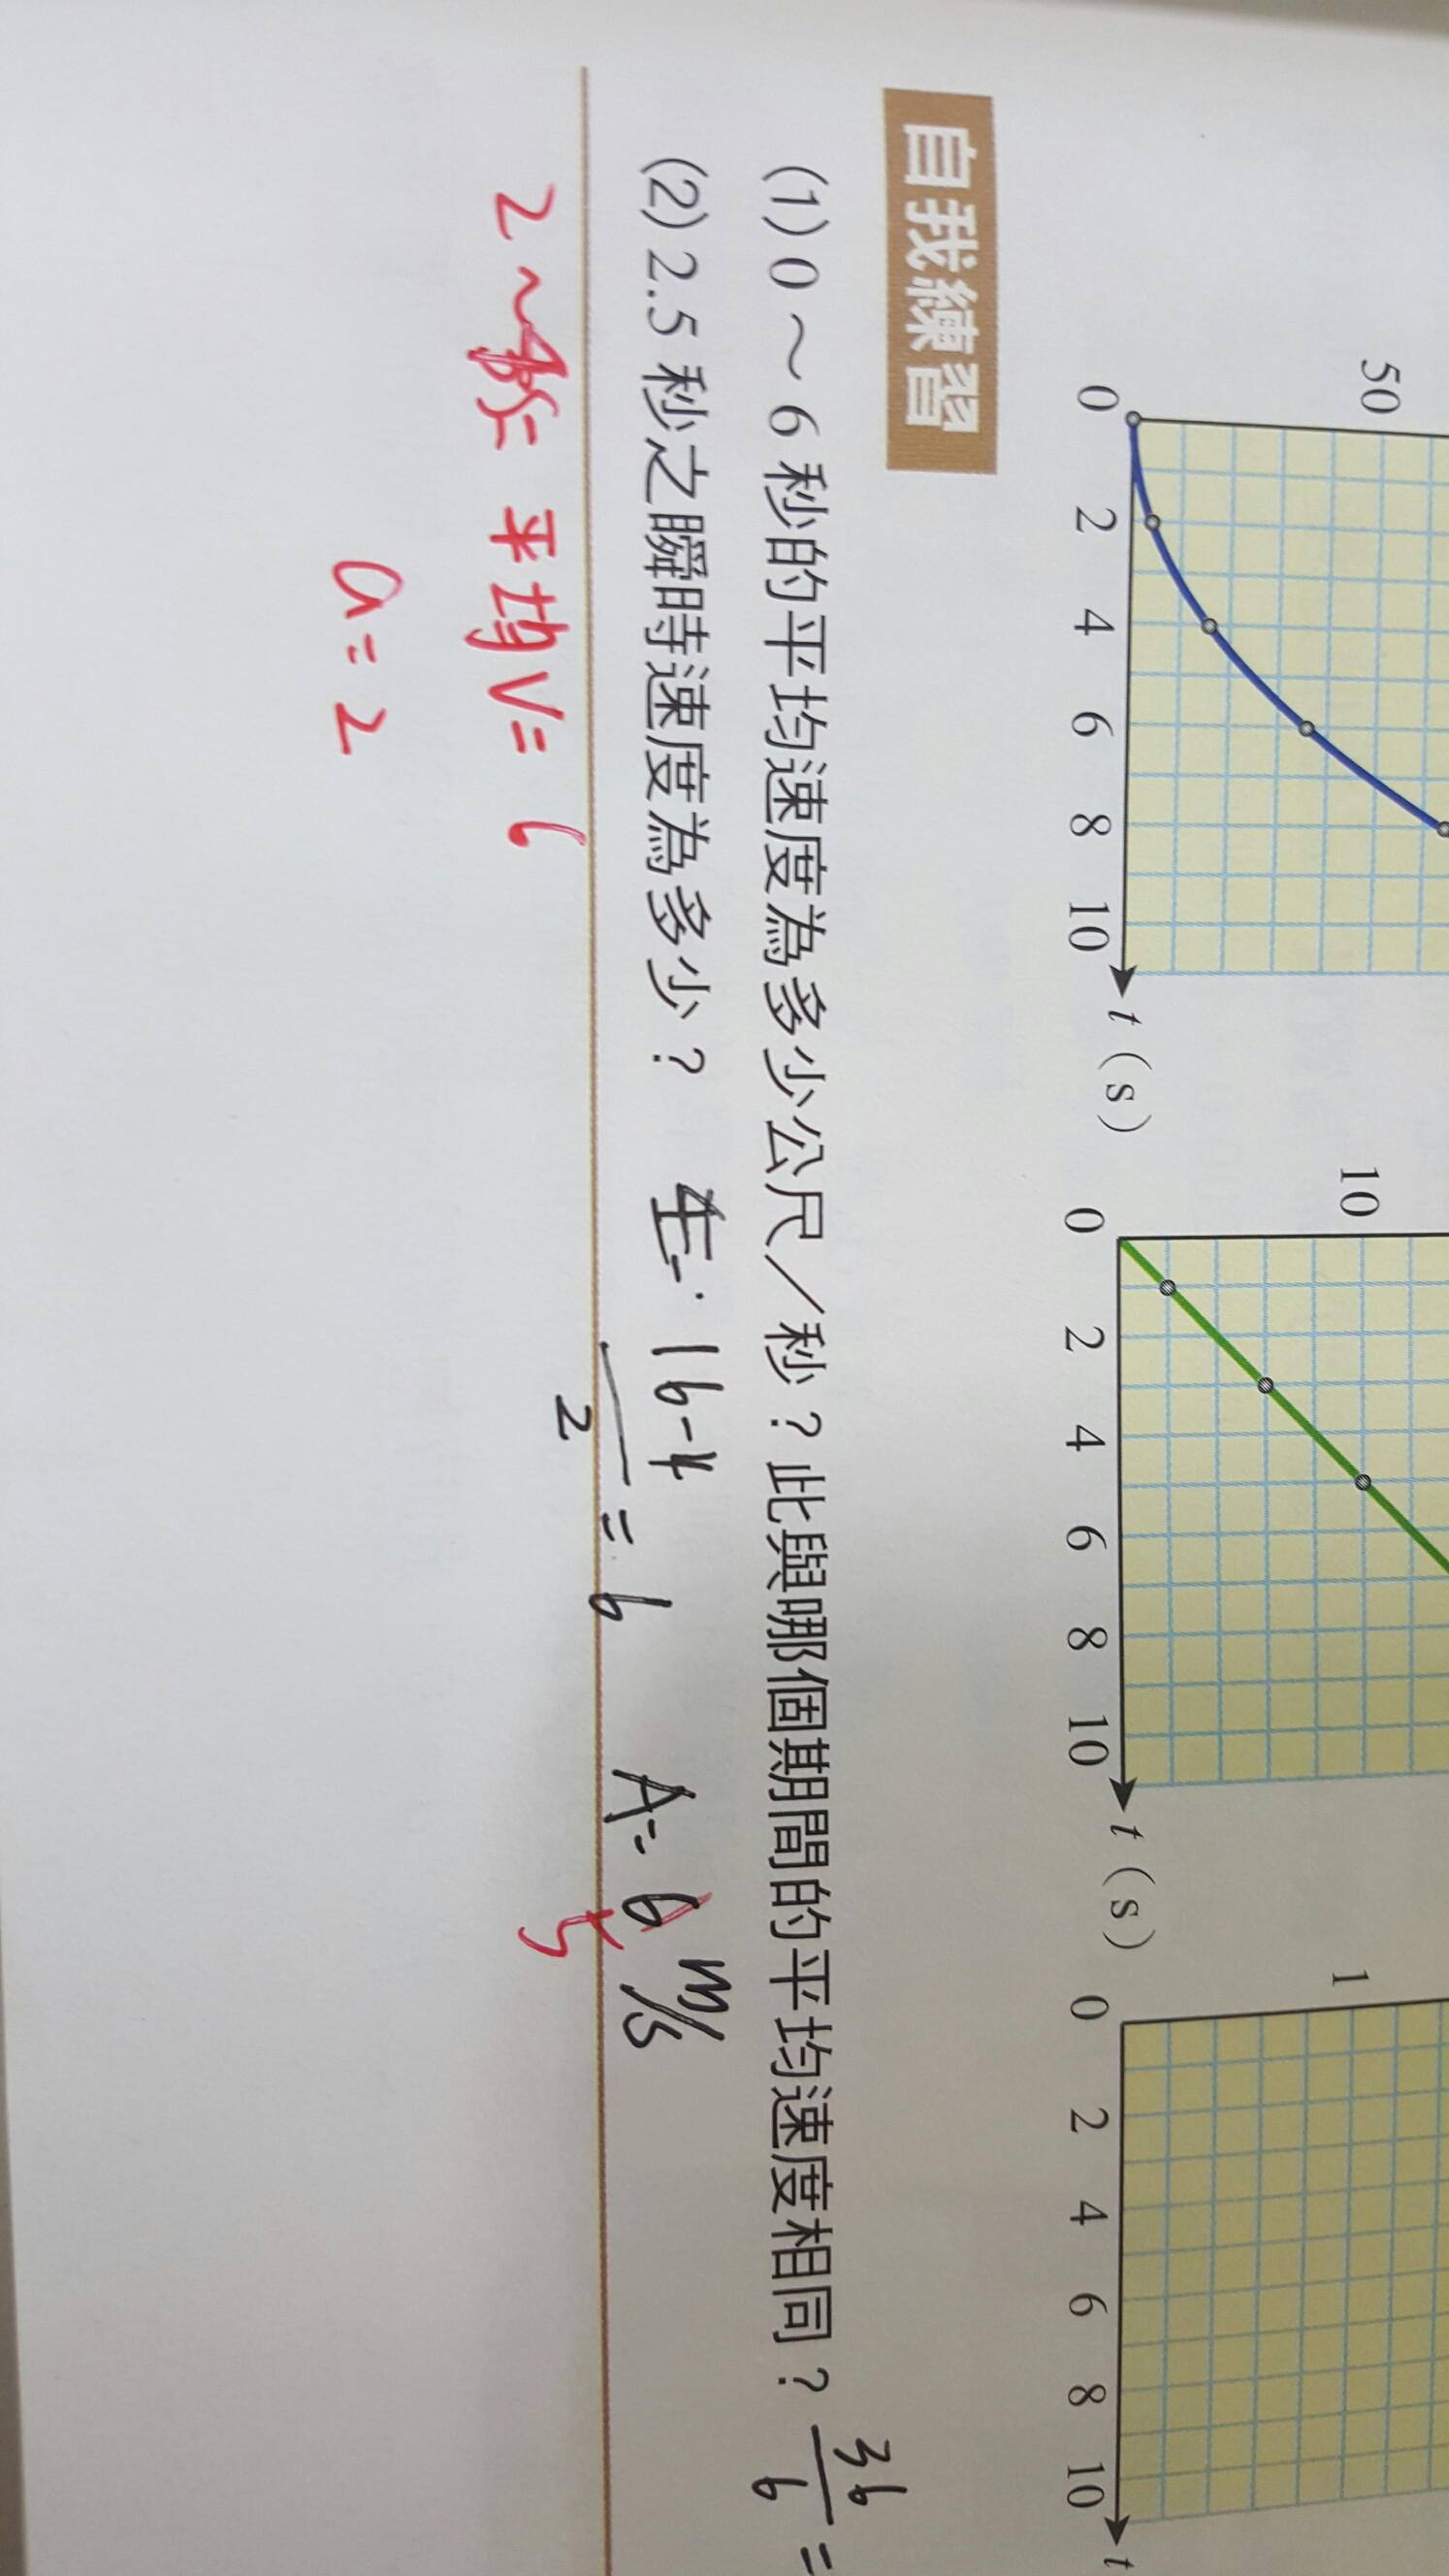 50
0 2 4 6 8 10 t（s）
10
0 2 4 6 8 10 t（s）
1
0 2 4 6 8 10 t
自我練習
(1) 0～6 秒的平均速度為多少公尺／秒？此與哪個期間的平均速度相同？ 36/6 =
(2) 2.5 秒之瞬時速度為多少？ 16-4/2 = 6 A= 6 m/s
5
平均 V= 6
a= 2